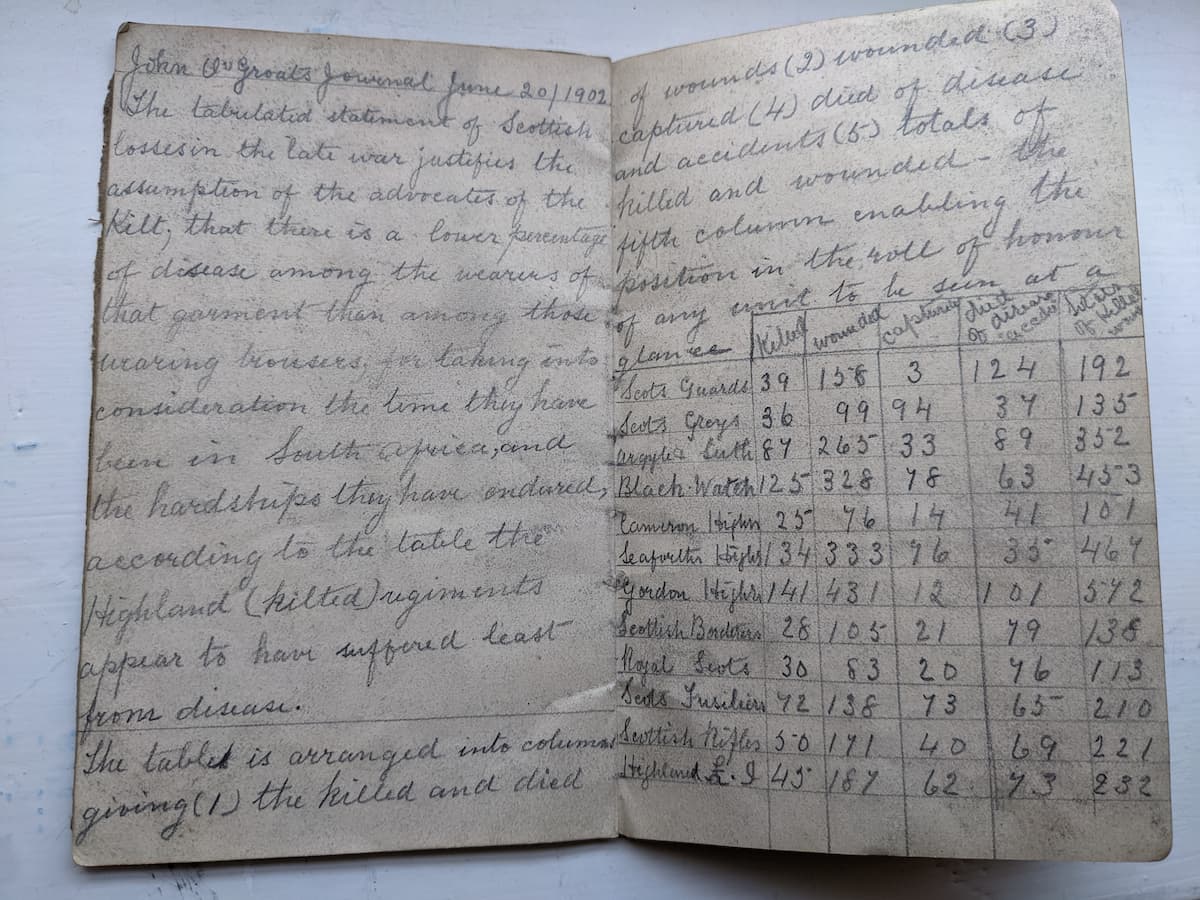 John O'Groats Journal June 20/1902
The tabulated statement of Scottish
losses in the late war justifies the
assumption of the advocates of the
Kilt, that there is a lower percentage
of disease among the wearers of
that garment than among those
wearing trousers, for taking into
consideration the time they have
been in South Africa, and
the hardships they have endured,
according to the table the
Highland (kilted) regiments
appear to have suffered least
from disease.
The table is arranged into columns
giving (1) the killed and died
of wounds (2) wounded (3)
captured (4) died of disease
and accidents (5) totals of
killed and wounded - the
fifth column enabling the
position in the roll of honour
of any unit to be seen at a
glance
Killed wounded captured died of disease accdts totals of killed wound
Scots Guards 39 158 3 124 192
Scots Greys 36 99 94 37 135
Argyle & Suth 87 265 33 89 352
Black Watch 125 328 78 63 453
Cameron Highrs 25 76 14 41 101
Seaforth Highrs 134 333 76 35 467
Gordon Highrs 141 431 12 101 572
Scottish Borderers 28 105 21 79 138
Royal Scots 30 83 20 76 113
Scots Fusiliers 72 138 73 65 210
Scottish Rifles 50 171 40 69 221
Highland L. I 45 187 62 73 232